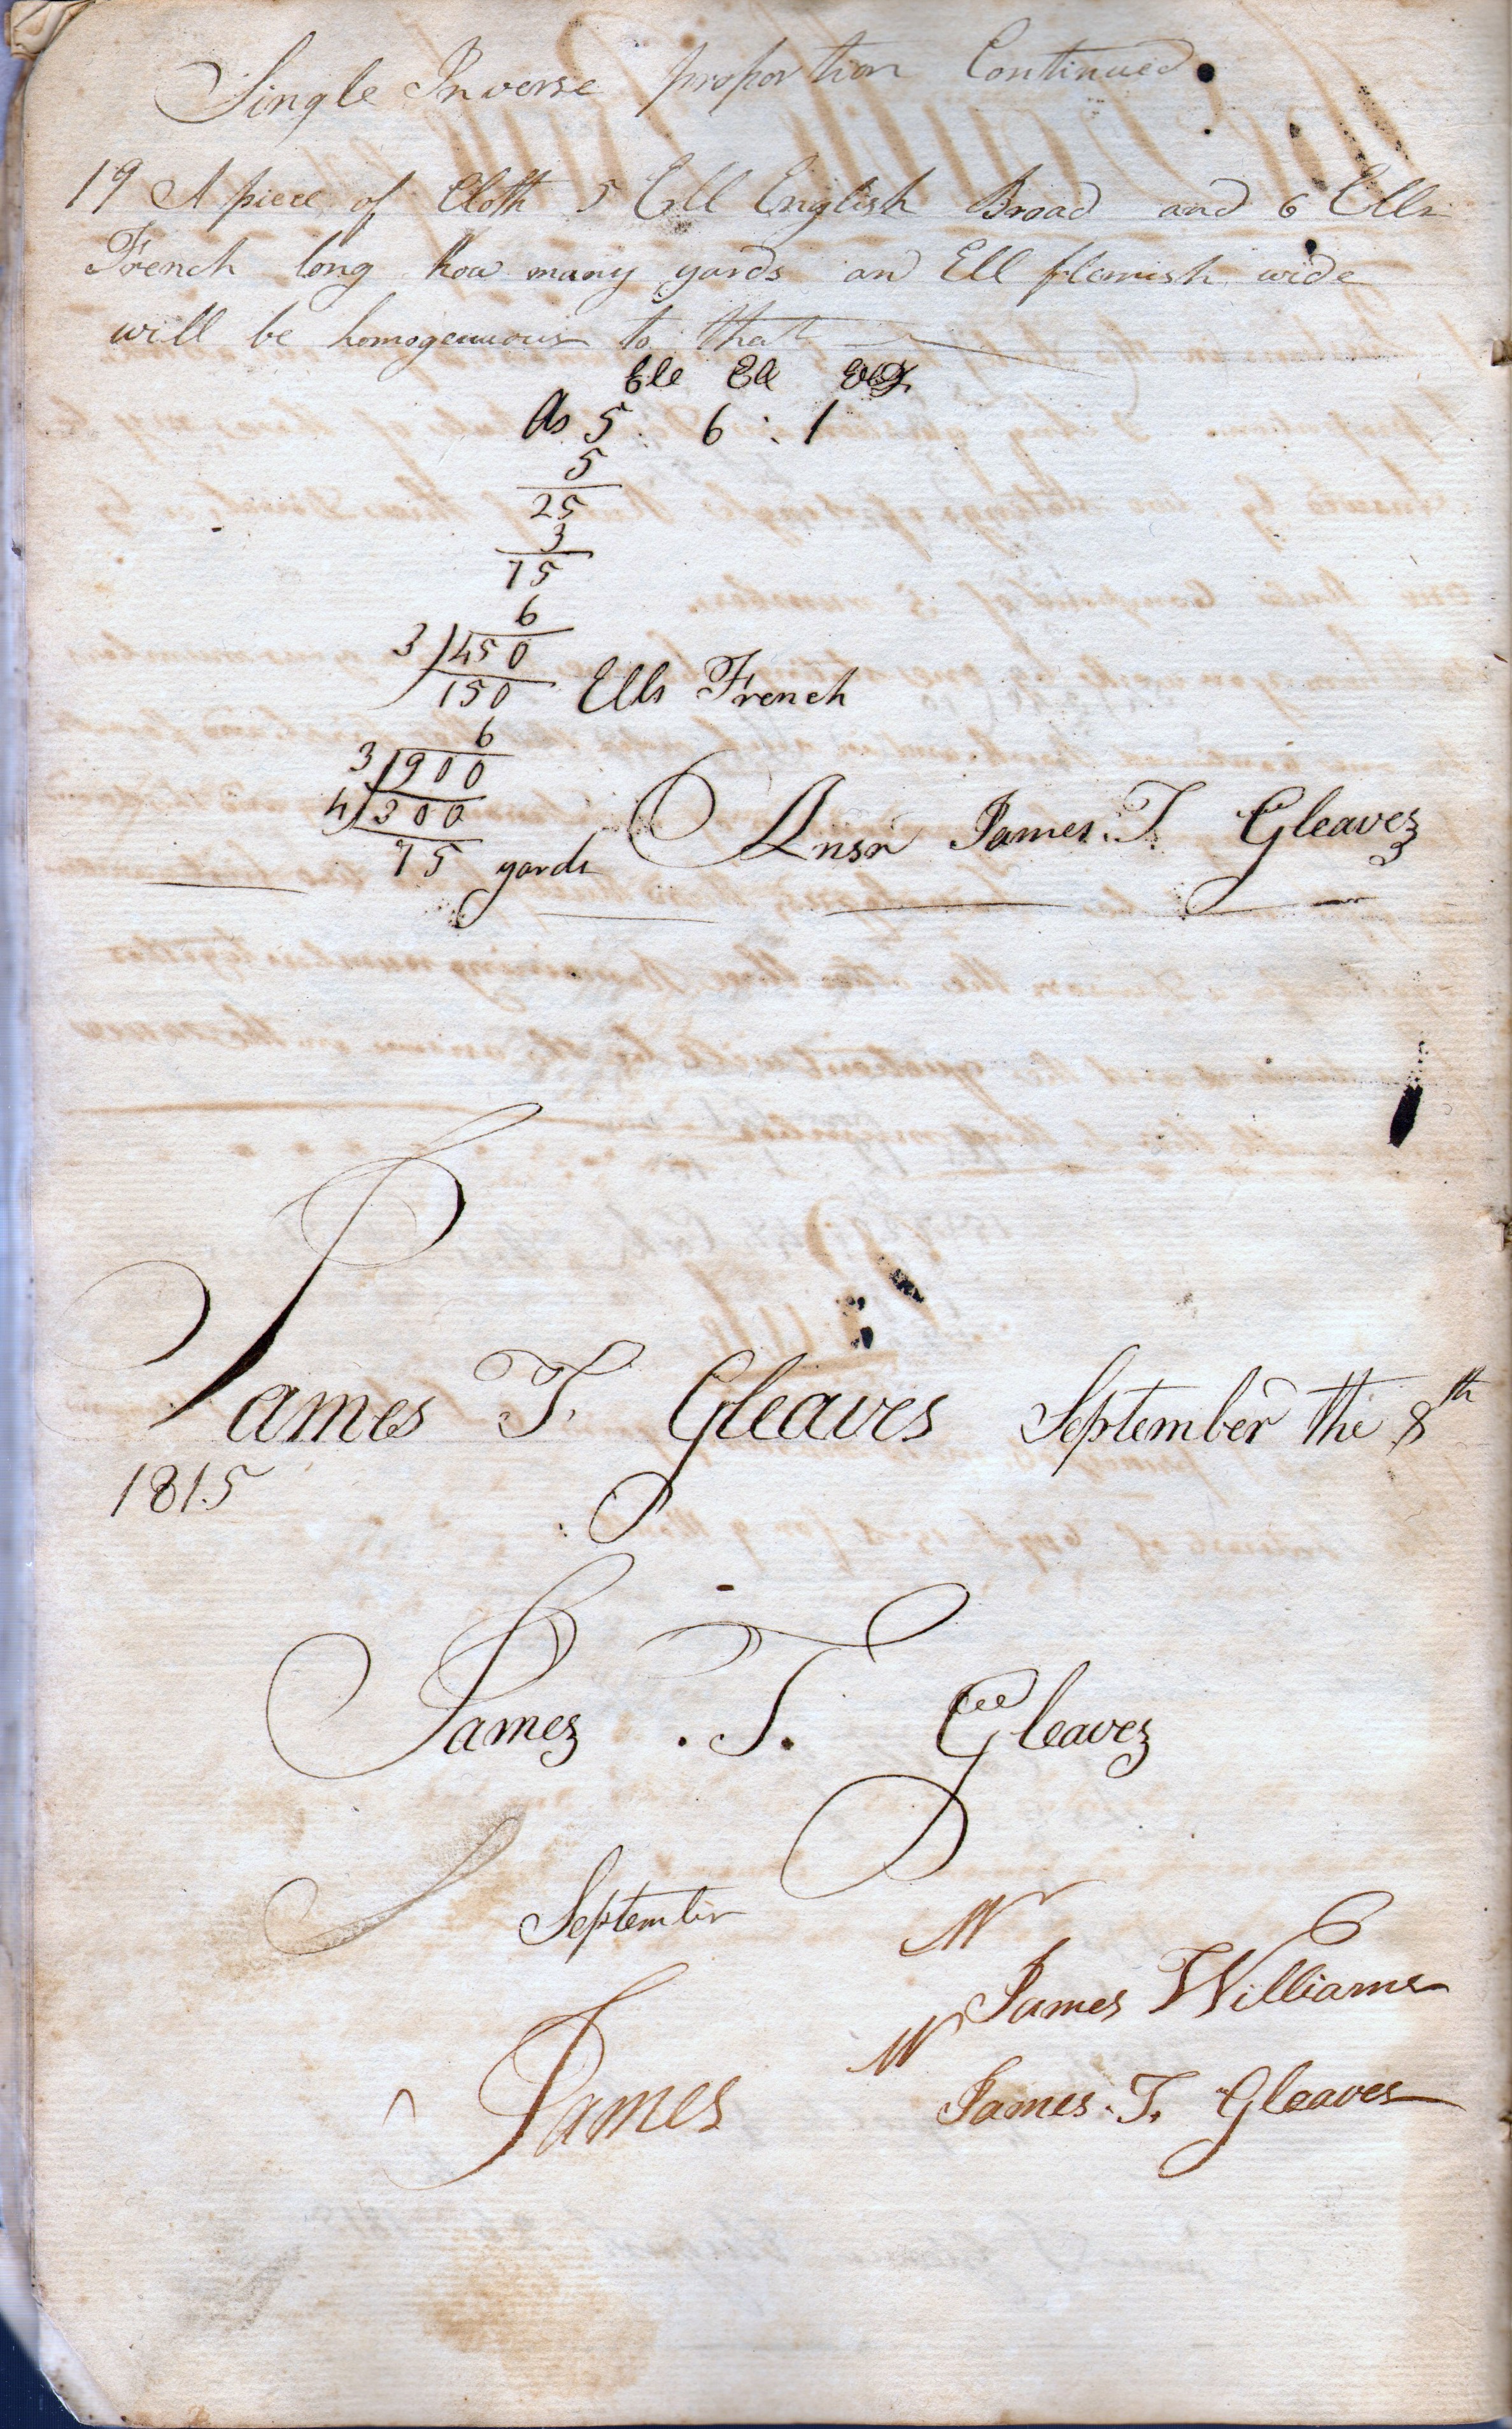 Single Inverse proportion Continued
19 A piece of Cloth 5 Ell English Broad and 6 Ells
French long how many yards an Ell flemish wide
will be homogeneous to that
Ell Ell
As 5 : 6 : 1
5
25
3
75
6
3)450
150 Ells French
6
3)900
4)300
75 yards Ansr James. T. Gleaves
James T. Gleaves September the 8th
1815
James . T. Gleaves
September
Mr
James Williams
Mr
James
James. T. Gleaves